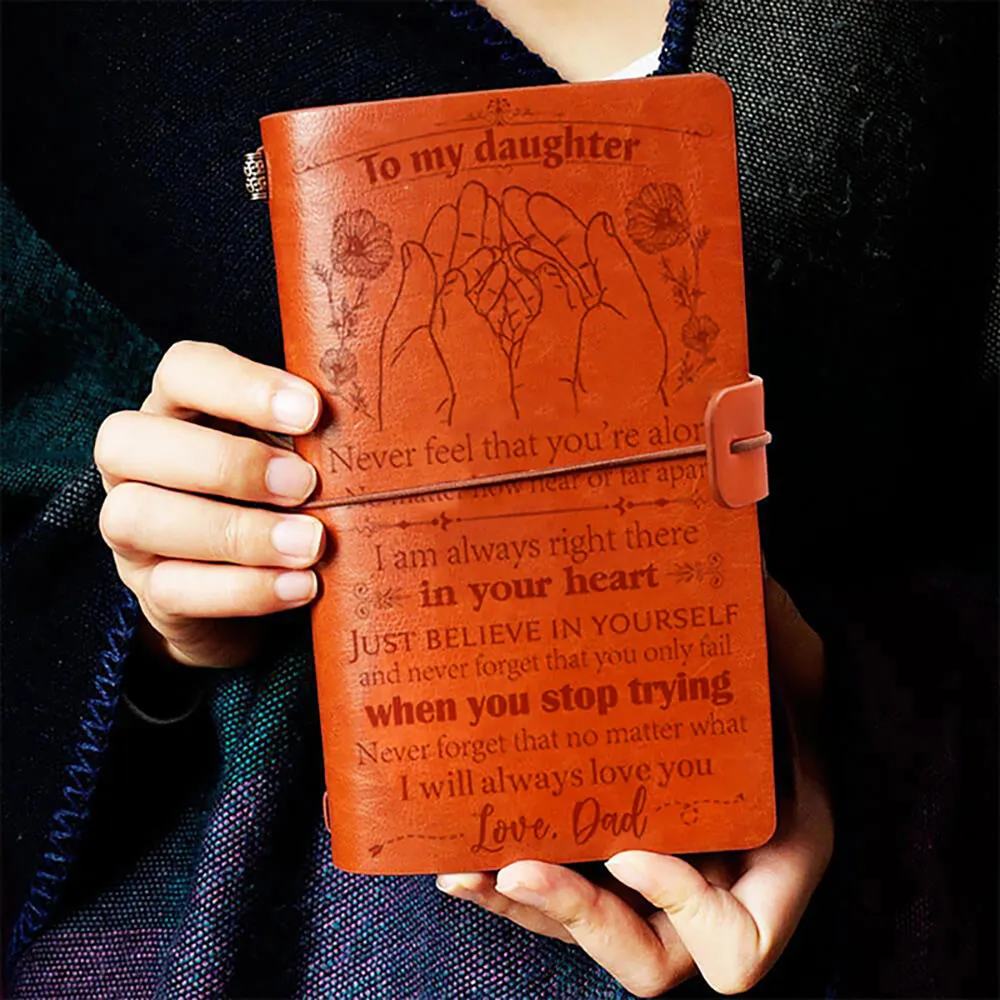 To my daughter
Never feel that you're alon
No matter how near or far apar
I am always right there
in your heart
JUST BELIEVE IN YOURSELF
and never forget that you only fail
when you stop trying
Never forget that no matter what
I will always love you
Love, Dad